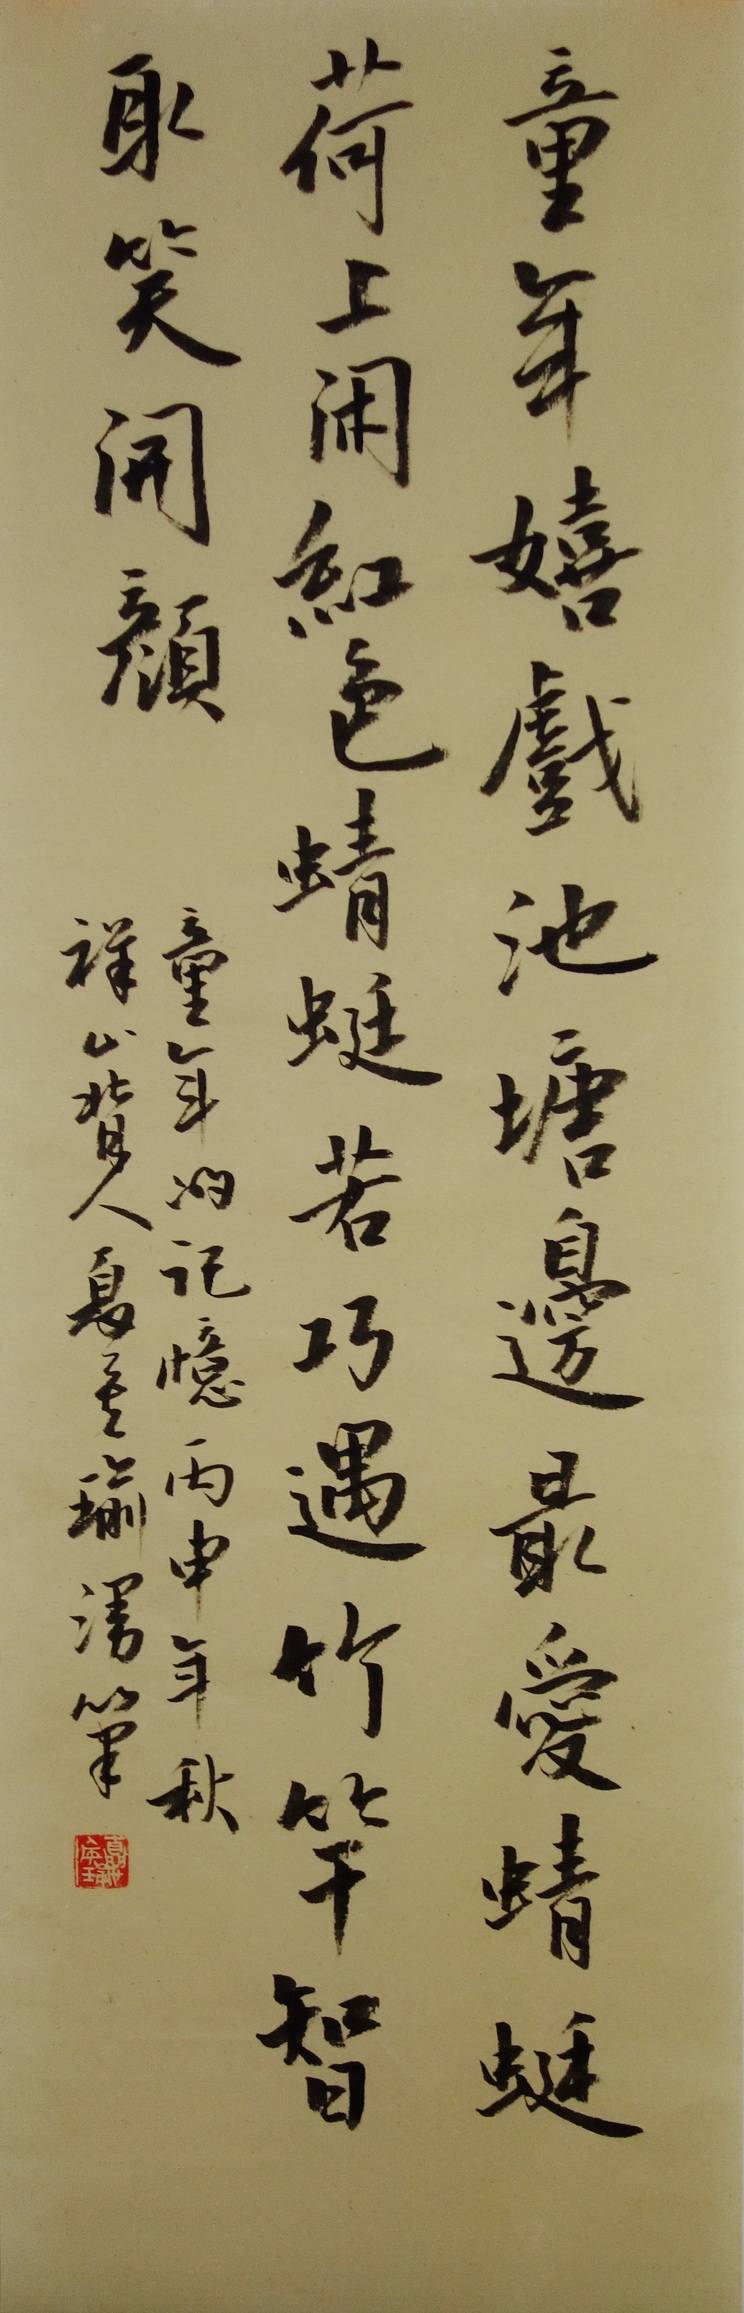 童年嬉戲池塘邊最愛蜻蜓
荷上閑紅色蜻蜓若巧遇竹竿智
取笑開顏
童年的記憶丙申年秋
祥山背人夏年瑜湯筆